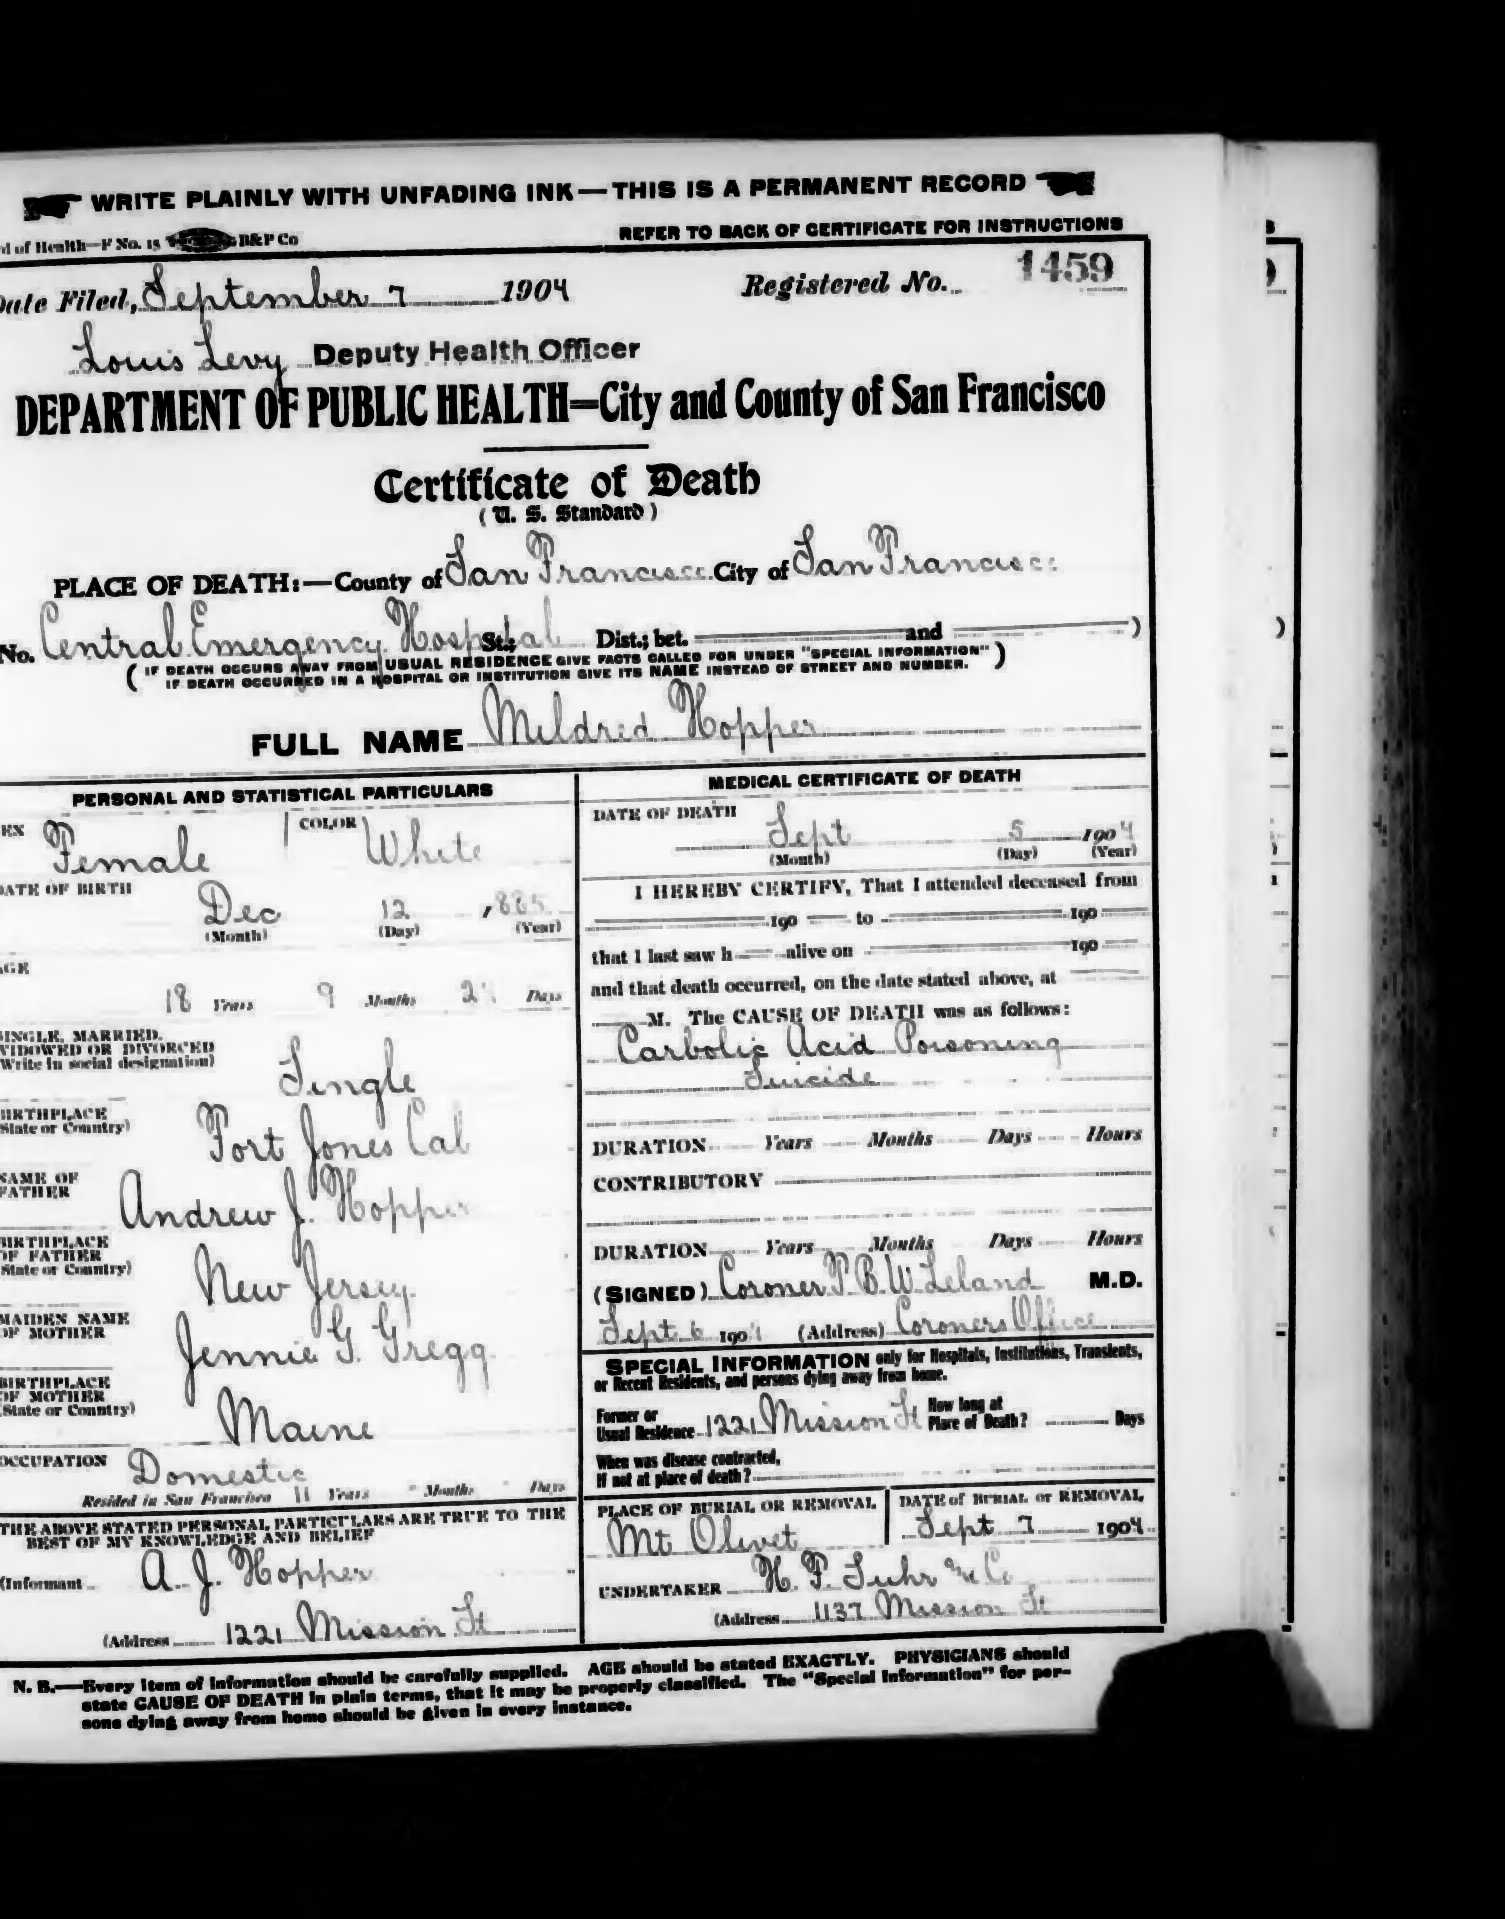 WRITE PLAINLY WITH UNFADING INK—THIS IS A PERMANENT RECORD
d of Health—F No. 15 B&P Co REFER TO BACK OF CERTIFICATE FOR INSTRUCTIONS
Date Filed, September 7 1904 Registered No. 1459
Louis Levy Deputy Health Officer
DEPARTMENT OF PUBLIC HEALTH=City and County of San Francisco
Certificate of Death
(U. S. Standard)
PLACE OF DEATH:—County of San Francisco City of San Francisco
No. Central Emergency Hospital St.; Dist.; bet. and )
( IF DEATH OCCURS AWAY FROM USUAL RESIDENCE GIVE FACTS CALLED FOR UNDER "SPECIAL INFORMATION" )
IF DEATH OCCURRED IN A HOSPITAL OR INSTITUTION GIVE ITS NAME INSTEAD OF STREET AND NUMBER.
FULL NAME Mildred Hopper
PERSONAL AND STATISTICAL PARTICULARS
EX Female COLOR White
DATE OF BIRTH
Dec 12 , 885
(Month) (Day) (Year)
AGE
18 Years 9 Months 2 Days
INGLE, MARRIED,
WIDOWED OR DIVORCED
Write in social designation)
Single
BIRTHPLACE
State or Country)
Fort Jones Cal
NAME OF
FATHER
Andrew J. Hopper
BIRTHPLACE
OF FATHER
State or Country)
New Jersey
MAIDEN NAME
OF MOTHER
Jennie G. Gregg
BIRTHPLACE
OF MOTHER
(State or Country)
Maine
OCCUPATION Domestic
Resided in San Francisco 11 Years " Months " Days
THE ABOVE STATED PERSONAL PARTICULARS ARE TRUE TO THE
BEST OF MY KNOWLEDGE AND BELIEF
(Informant A. J. Hopper
(Address 1221 Mission St
MEDICAL CERTIFICATE OF DEATH
DATE OF DEATH
Sept 5 1904
(Month) (Day) (Year)
I HEREBY CERTIFY, That I attended deceased from
190 to 190
that I last saw h alive on 190
and that death occurred, on the date stated above, at
M. The CAUSE OF DEATH was as follows:
Carbolic Acid Poisoning
Suicide
DURATION Years Months Days Hours
CONTRIBUTORY
DURATION Years Months Days Hours
(SIGNED) Coroner T. B. W. Leland M.D.
Sept 6 1904 (Address) Coroners Office
SPECIAL INFORMATION only for Hospitals, Institutions, Transients,
or Recent Residents, and persons dying away from home.
Former or
Usual Residence 1221 Mission St How long at
Place of Death? Days
When was disease contracted,
If not at place of death?
PLACE OF BURIAL OR REMOVAL
Mt Olivet
DATE of BURIAL or REMOVAL
Sept 7 1904
UNDERTAKER H. F. Suhr & Co
(Address 1137 Mission St
N. B.—Every item of information should be carefully supplied. AGE should be stated EXACTLY. PHYSICIANS should
state CAUSE OF DEATH in plain terms, that it may be properly classified. The "Special Information" for per-
sons dying away from home should be given in every instance.